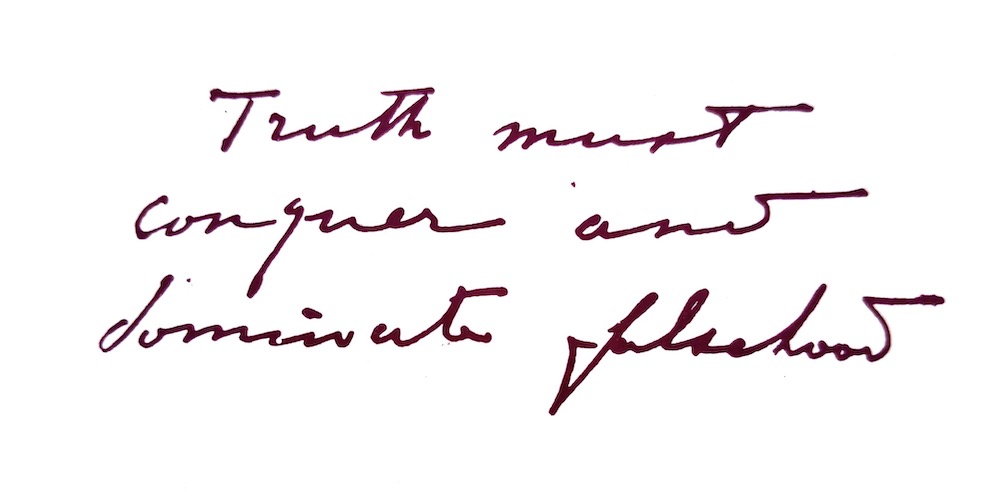 Truth must
conquer and
dominate falsehood